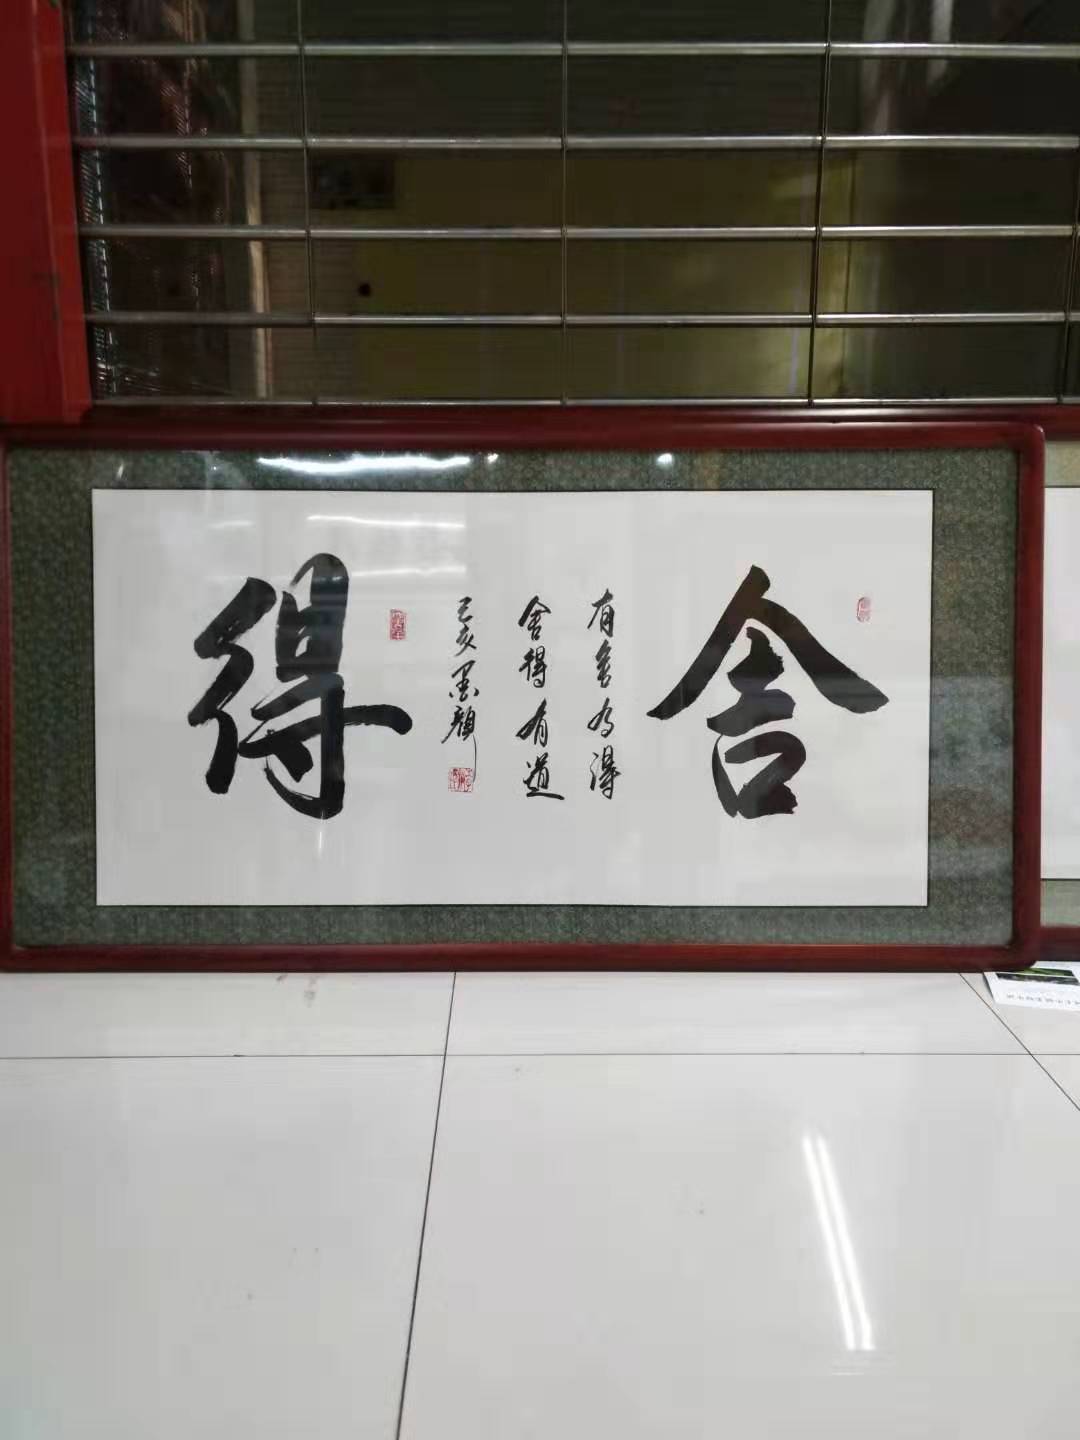 舍
有舍为得
舍得有道
己亥墨颜
得